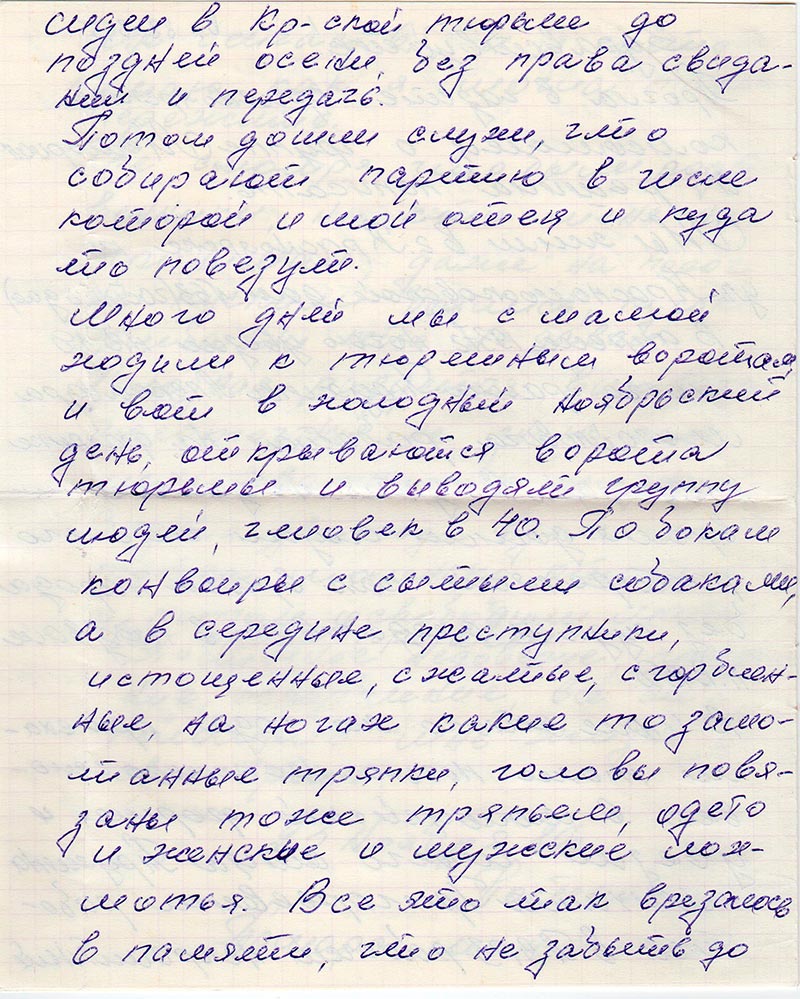 сидел в Кр-ской тюрьме до
поздней осени, без права свида-
ний и передачь.
Потом дошли слухи, что
собирают партию в числе
которой и мой отец и куда
то повезут.
Много дней мы с мамой
ходили к тюремным воротам,
и вот в холодный ноябрьский
день, открываются ворота
тюрьмы и выводят группу
людей, человек в 40. По бокам
конвоиры с сытыми собаками,
а в середине преступники,
истощенные, сжатые, сгорблен-
ные, на ногах какие то замо-
танные тряпки, головы повя-
заны тоже тряпьем, одето
и женские и мужские лох-
мотья. Все это так врезалось
в памяти, что не забыть до